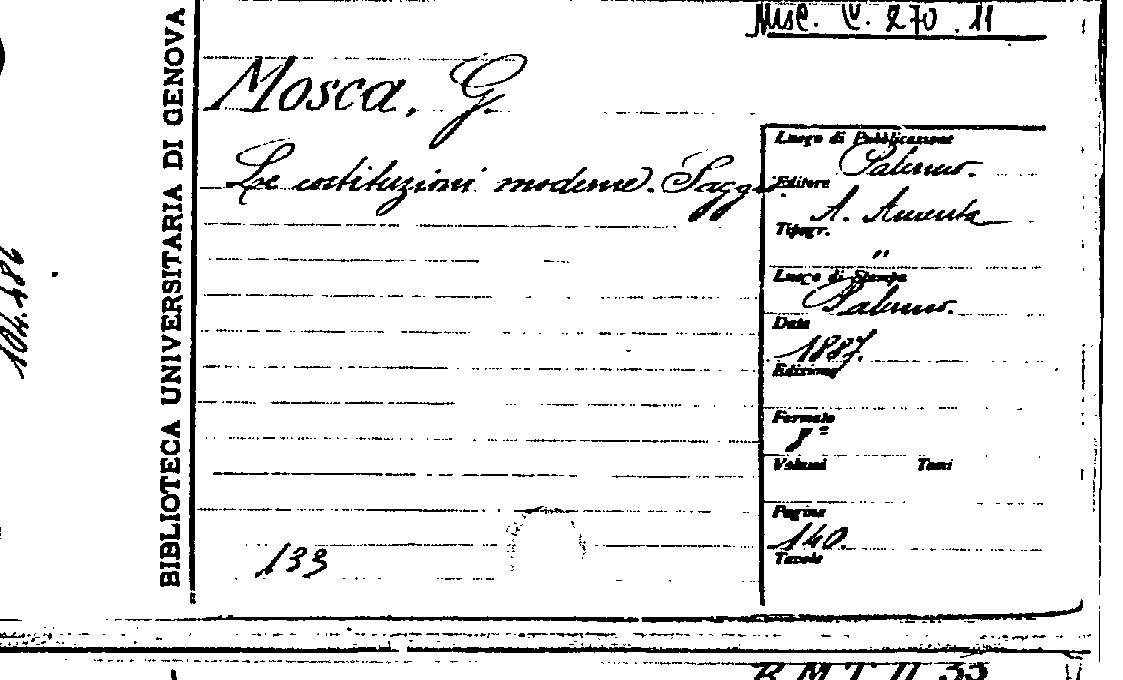 Misc. C. 270.11
BIBLIOTECA UNIVERSITARIA DI GENOVA
104.486
Mosca, G.
Le costituzioni moderne. Saggio.
Luogo di Pubblicazione
Palermo.
Editore
A. Amenta
Tipogr.
"
Luogo di Stampa
Palermo.
Data
1887.
Edizione
Formato
8°
Volumi Tomi
Pagine
140.
Tavole
133